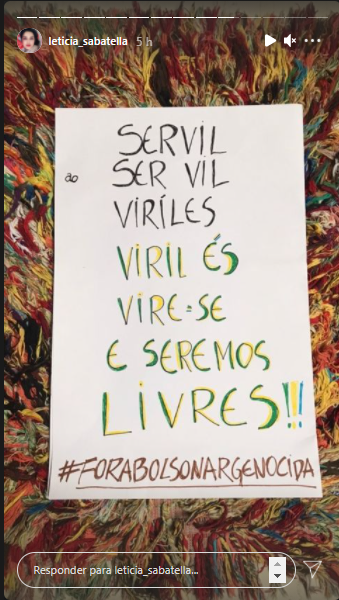 leticia_sabatella 5 h
SERVIL
ao SER VIL
VIRÍLES
VIRIL ÉS
VIRE-SE
E SEREMOS
LIVRES!!!
#FORABOLSONARGENOCIDA
Responder para leticia_sabatella...